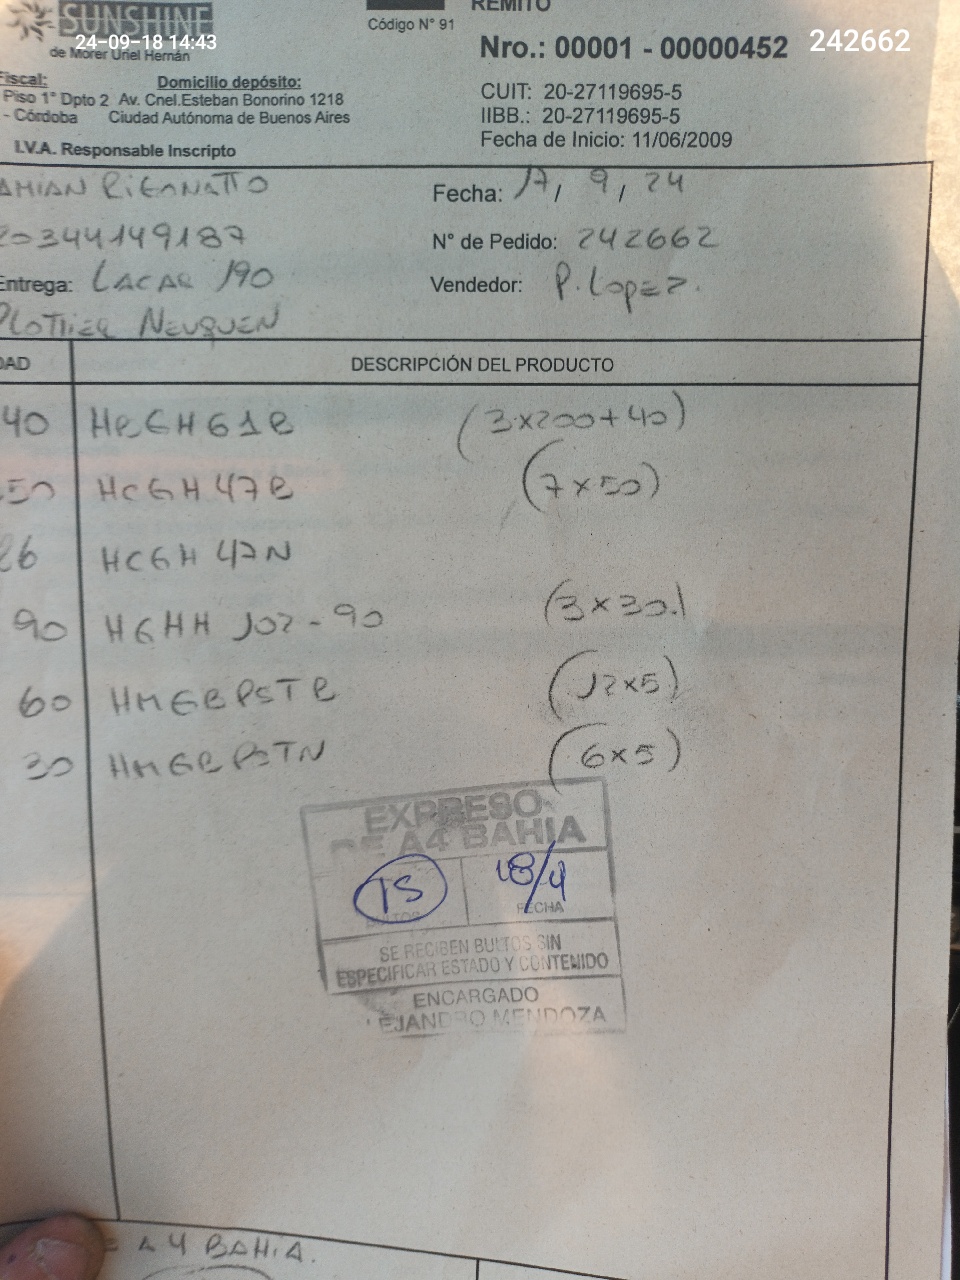 SUNSHINE
de Morer Uriel Hernán
24-09-18 14:43
REMITO
Código N° 91
Nro.: 00001 - 00000452
242662
Fiscal:
Domicilio depósito:
Piso 1° Dpto 2 Av. Cnel.Esteban Bonorino 1218
- Córdoba Ciudad Autónoma de Buenos Aires
I.V.A. Responsable Inscripto
CUIT: 20-27119695-5
IIBB.: 20-27119695-5
Fecha de Inicio: 11/06/2009
Fecha: 17, 9, 24
20344149187
N° de Pedido: 242662
Entrega: LACAR 190
Vendedor: P. Lopez.
PLOTTIER NEUQUEN
DAD
DESCRIPCIÓN DEL PRODUCTO
40 (3x200+40)
50 HCGH 47B (7x50)
26 HCGH 47N
90 HGHH 102-90 (3x30)
60 (12x5)
30 (6x5)
EXPRESO
DE A4 BAHIA
15
18/9
BULTOS
FECHA
SE RECIBEN BULTOS SIN
ESPECIFICAR ESTADO Y CONTENIDO
ENCARGADO
EJANDRO MENDOZA
A4 BAHIA.